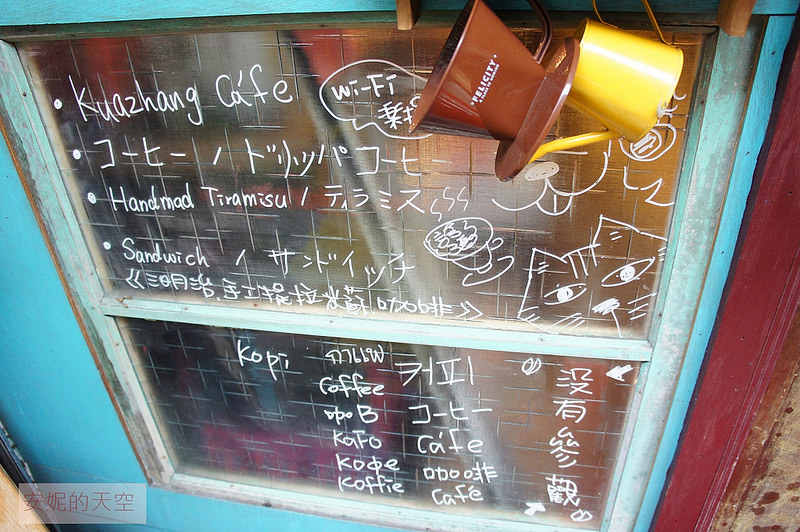 Kuazhang Cáfe
Wi-Fi
FELICITY
コーヒー / ドリッパコーヒー
Handmad Tiramisu / ティラミス
Sandwich / サンドイッチ
《三明治.手工提拉米蘇 咖啡》
Kopi กาแฟ 커피
Coffee
コーヒー
KaFo Cáfe
Кофе 咖啡
Koffie Café
沒有參觀
安妮的天空